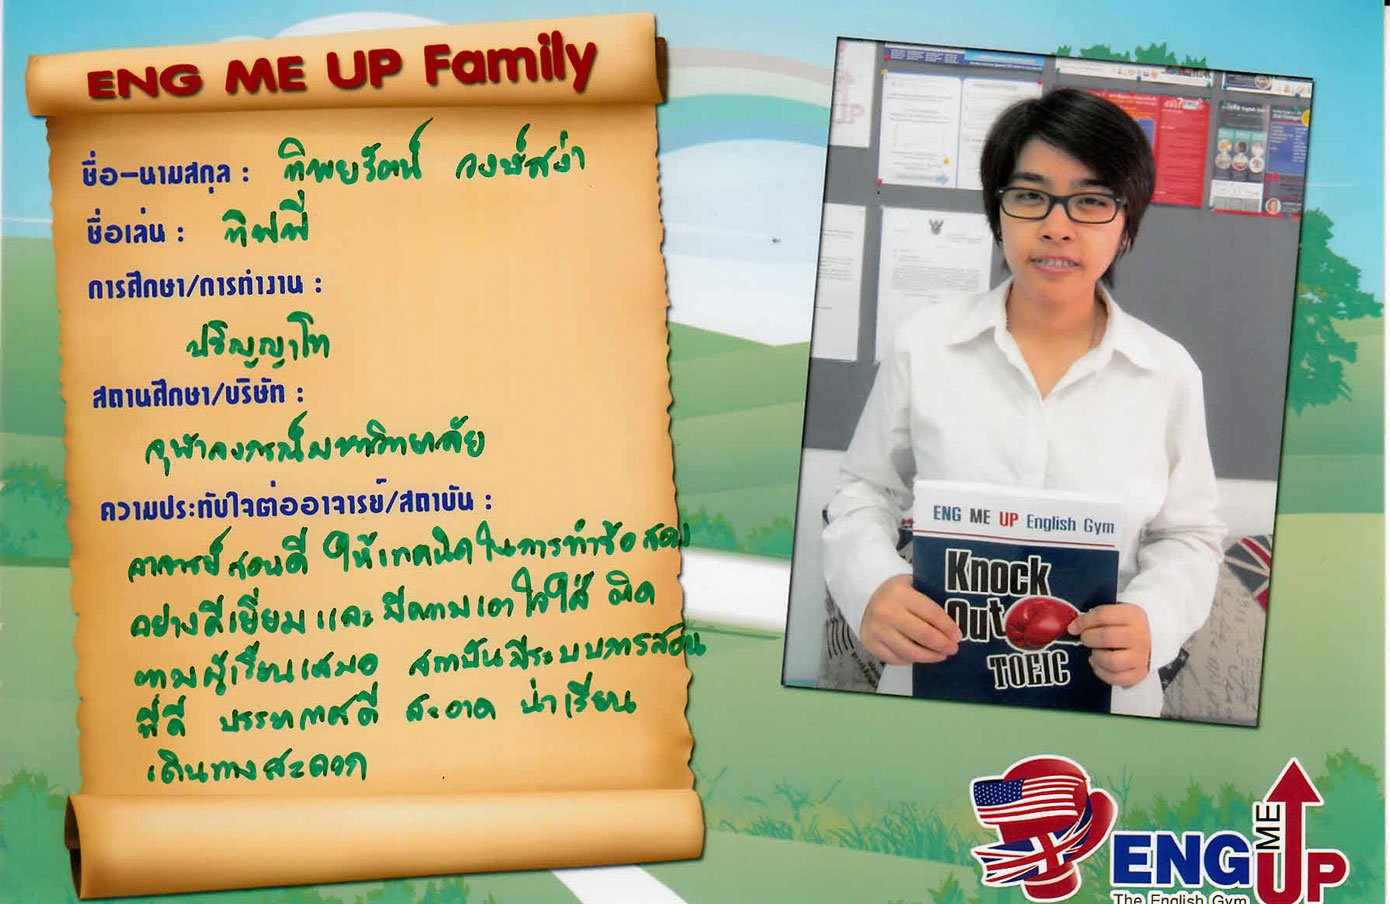 ENG ME UP Family
ชื่อ-นามสกุล : ทิพยรัตน์ วงษ์สง่า
ชื่อเล่น : ทิฟฟี่
การศึกษา/การทำงาน :
ปริญญาโท
สถานศึกษา/บริษัท :
จุฬาลงกรณ์มหาวิทยาลัย
ความประทับใจต่ออาจารย์/สถาบัน :
อาจารย์สอนดี ให้เทคนิคในการทำข้อสอบ
อย่างดีเยี่ยม และมีความเอาใจใส่ ติด
ตามผู้เรียนเสมอ สถาบันมีระบบการสอน
ที่ดี บรรยากาศดี สะอาด น่าเรียน
เดินทางสะดวก
ENG ME UP English Gym
Knock
Out
TOEIC
ENG ME UP
The English Gym